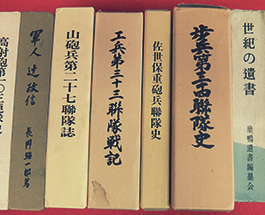 高射砲第一〇三
軍人 辻政信
山砲兵第二十七聯隊誌
工兵第三十三聯隊戦記
佐世保重砲兵聯隊史
歩兵第三十四聯隊史
世紀の遺書
巣鴨遺書編纂会